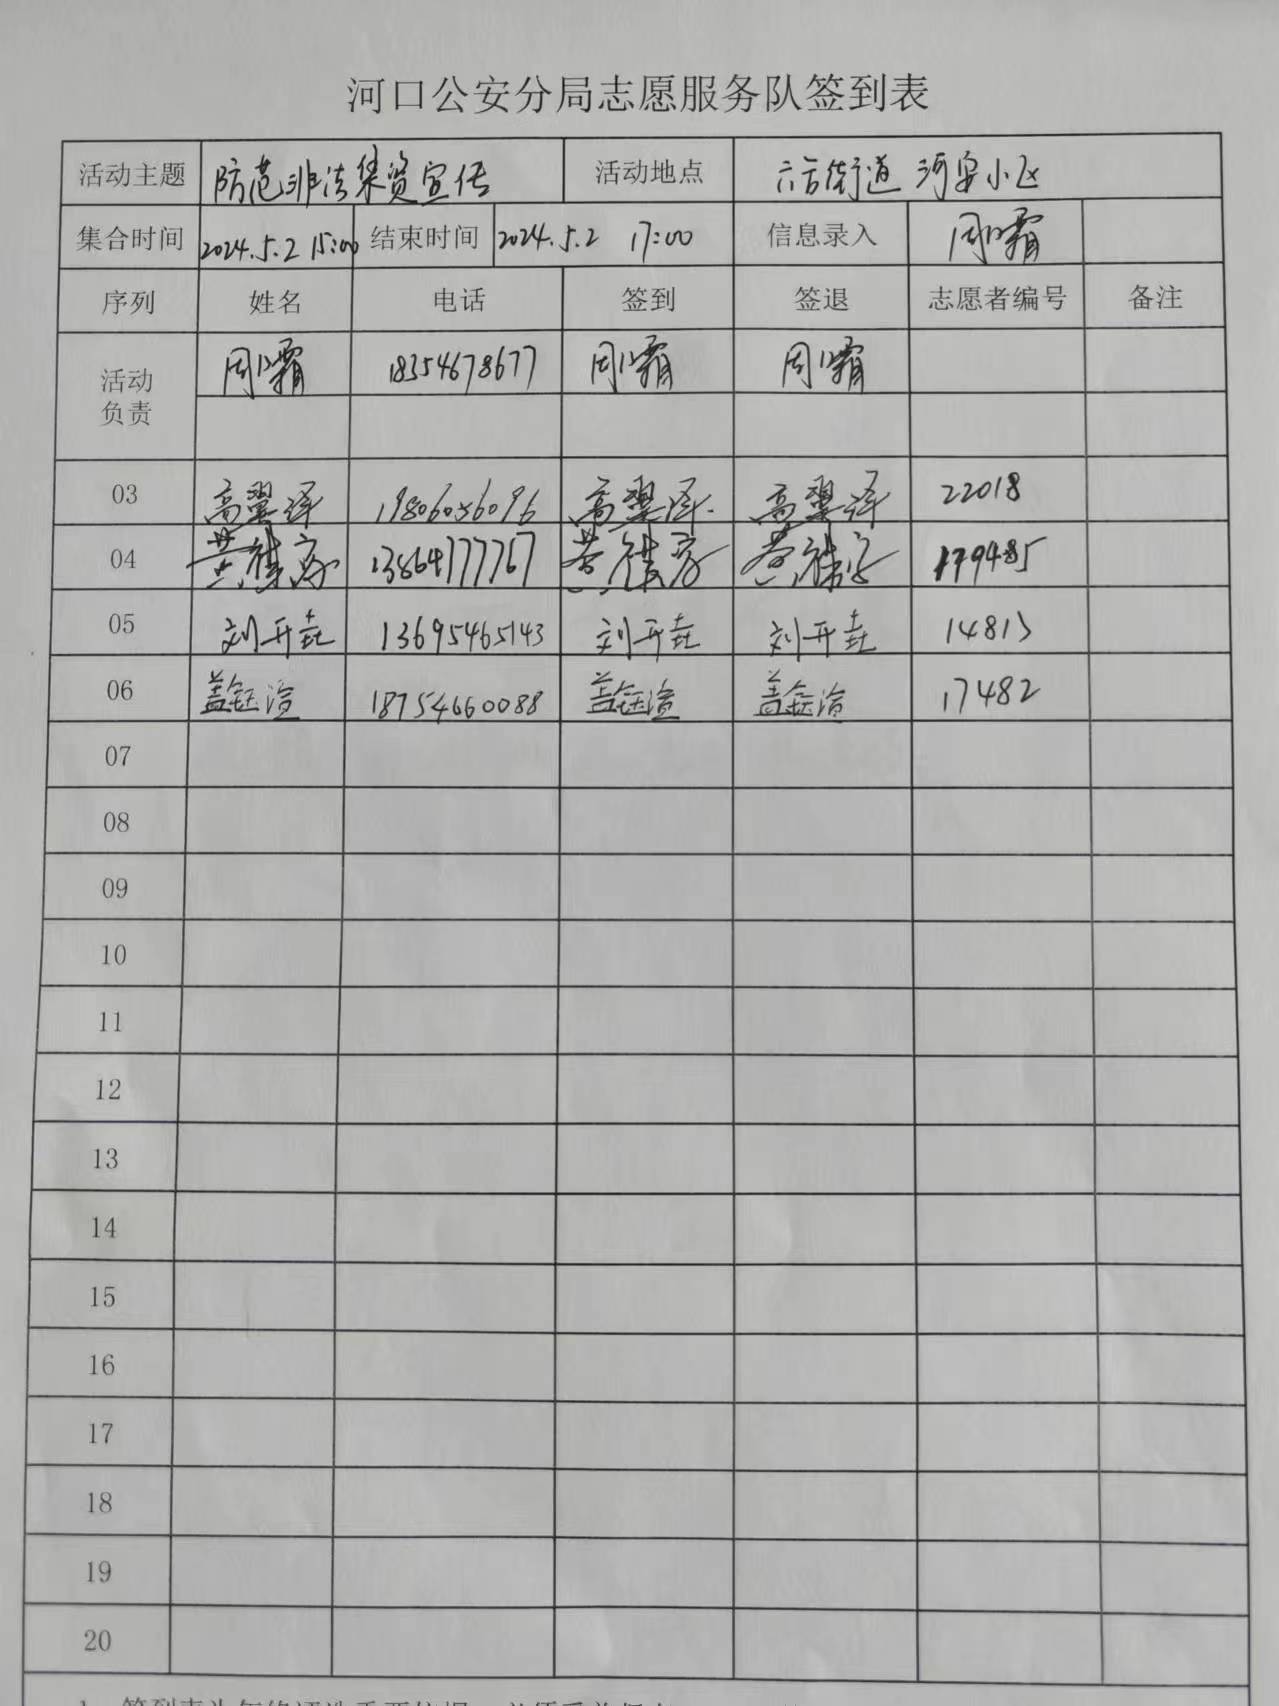 河口公安分局志愿服务队签到表
活动主题 防范非法集资宣传 活动地点 六合街道 河安小区
集合时间 2024.5.2 15:00 结束时间 2024.5.2 17:00 信息录入 周霜
序列 姓名 电话 签到 签退 志愿者编号 备注
活动负责 周霜 18354678677 周霜 周霜
03 高翌泽 19806056096 高翌泽 高翌泽 22018
04 黄 13864777767 黄 黄 179485
05 刘开垚 13695465143 刘开垚 刘开垚 14813
06 盖钰渲 18754660088 盖钰渲 盖钰渲 17482
07
08
09
10
11
12
13
14
15
16
17
18
19
20